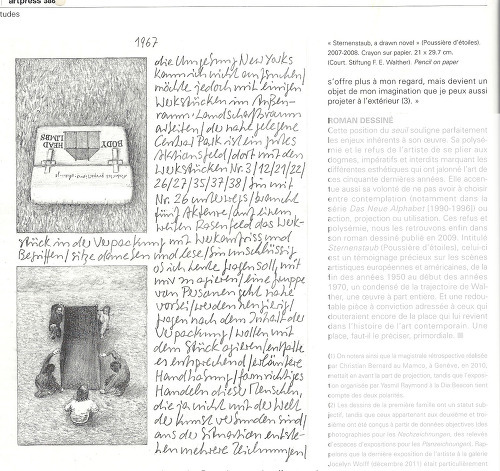 artpress 386
tudes
1967
die Umgebung New Yorks
kann ich nicht aufsuchen/
möchte jedoch mit einigen
Werkstücken im Außen-
raum, Landschaftsraum
arbeiten/der nahe gelegene
Central Park ist ein gutes
Aktionsfeld/dort mit den
Werkstücken Nr. 3/12/21/22/
26/27/35/37/38/bin mit
Nr. 26 unterwegs/brauche
fünf Akteure/auf einem
weiten Rasenfeld das Werk-
stück in der Verpackung mit Werkumriss und
Begriffen/sitze daneben und lese/bin unschlüssig
ob ich Leute fragen soll, mit
mir zu agieren/eine Gruppe
von Personen geht nahe
vorbei/werden neugierig/
fragen nach dem Inhalt der
Verpackung/wollen mit
dem Stück agieren/entfalte
es entsprechend/erläutere
Handhabung/
Handeln dieser Menschen,
die ja nicht mit der Welt
der Kunst verbunden sind/
aus der Situation entste-
hen mehrere Zeichnungen/
HEAD
LIMBS
BODY
« Sternenstaub, a drawn novel » (Poussière d'étoiles).
2007-2008. Crayon sur papier. 21 x 29,7 cm.
(Court. Stiftung F. E. Walther). Pencil on paper
s'offre plus à mon regard, mais devient un
objet de mon imagination que je peux aussi
projeter à l'extérieur (3). »
ROMAN DESSINÉ
Cette position du seuil souligne parfaitement
les enjeux inhérents à son œuvre. Sa polysé-
mie et le refus de l'artiste de se plier aux
dogmes, impératifs et interdits marquant les
différentes esthétiques qui ont jalonné l'art de
ces cinquante dernières années. Elle accen-
tue aussi sa volonté de ne pas avoir à choisir
entre contemplation (notamment dans la
série Das Neue Alphabet (1990-1996)) ou
action, projection ou utilisation. Ces refus et
polysémie, nous les retrouvons enfin dans
son roman dessiné publié en 2009. Intitulé
Sternenstaub (Poussière d'étoiles), celui-ci
est un témoignage précieux sur les scènes
artistiques européennes et américaines, de la
fin des années 1950 au début des années
1970, un condensé de la trajectoire de Wal-
ther, une œuvre à part entière. Et une redou-
table pièce à conviction adressée à ceux qui
douteraient encore de la place qui lui revient
dans l'histoire de l'art contemporain. Une
place, faut-il le préciser, primordiale.
(1) On notera ainsi que la magistrale rétrospective réalisée
par Christian Bernard au Mamco, à Genève, en 2010,
mettait en avant la part de projection, tandis que l'exposi-
tion organisée par Yasmil Raymond à la Dia Beacon tient
compte des deux formes.
(2) Les dessins de la première famille ont un statut sub-
jectif, tandis que ceux appartenant aux deuxième et troi-
sième ont été conçus à partir de données objectives (des
photographies pour les Nachzeichnungen, des relevés
d'espaces d'expositions pour les Planzeichnungen). Rap-
pelons que la dernière exposition de l'artiste à la galerie
Jocelyn Wolff (décembre 2011) était particulièrement